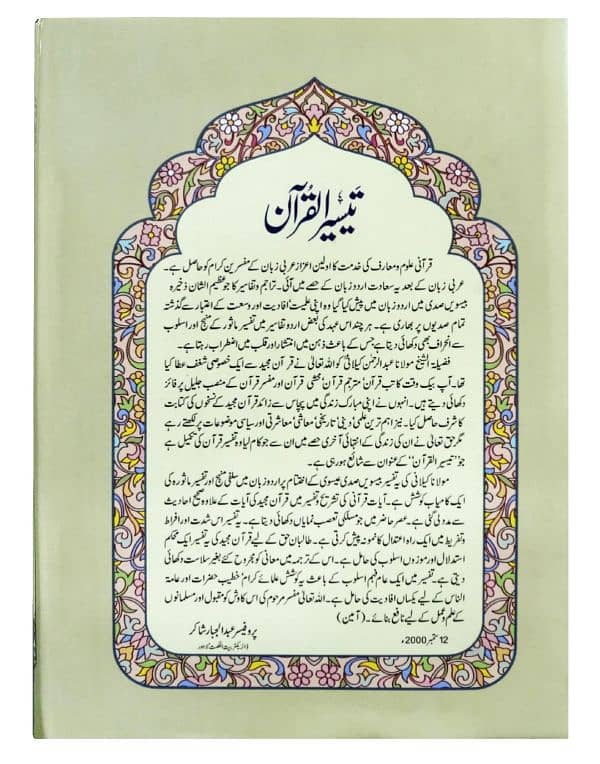 تیسیر القرآن
قرآنی علوم و معارف کی خدمت کا اولین اعزاز عربی زبان کے مفسرین کرام کو حاصل ہے۔
عربی زبان کے بعد یہ سعادت اردو زبان کے حصے میں آئی۔ تراجم و تفاسیر کا جو عظیم الشان ذخیرہ
بیسویں صدی میں اردو زبان میں پیش کیا گیا وہ اپنی علمیت‘ افادیت اور وسعت کے اعتبار سے گذشتہ
تمام صدیوں پر بھاری ہے۔ ہر چند اس عہد کی بعض اردو تفاسیر میں تفسیر ماثور کے منہج اور اسلوب
سے انحراف بھی دکھائی دیتا ہے جس کے باعث ذہن میں انتشار اور قلب میں اضطراب رہتا ہے۔
فضیلۃ الشیخ مولانا عبدالرحمٰن کیلانیؒ کو اللہ تعالیٰ نے قرآن مجید سے ایک خصوصی شغف عطا کیا
تھا۔ آپ بیک وقت کاتب قرآن‘ مترجم قرآن‘ محشی قرآن اور مفسر قرآن کے منصب جلیل پر فائز
دکھائی دیتے ہیں۔ انہوں نے اپنی مبارک زندگی میں پچاس سے زائد قرآن مجید کے نسخوں کی کتابت
کا شرف حاصل کیا۔ نیز اہم ترین علمی‘ دینی‘ تاریخی‘ معاشی‘ معاشرتی اور سیاسی موضوعات پر لکھتے رہے
مگر حق تعالیٰ نے ان کی زندگی کے انتہائی آخری حصے میں ان سے جو کام لیا وہ تفسیر قرآن کی تکمیل ہے
جو ”تیسیر القرآن“ کے عنوان سے شائع ہو رہی ہے۔
مولانا کیلانی کی یہ تفسیر بیسویں صدی عیسوی کے اختتام پر اردو زبان میں سلفی منہج اور تفسیر ماثورہ کی
ایک کامیاب کوشش ہے۔ آیات قرآنی کی تشریح و تفسیر میں قرآن مجید کی آیات کے علاوہ صحیح احادیث
سے مدد لی گئی ہے۔ عصر حاضر میں جو مسلکی تعصب نمایاں دکھائی دیتا ہے۔ یہ تفسیر اس شدت اور افراط
و تفریط میں ایک راہ اعتدال کا نمونہ پیش کرتی ہے۔ طالبان حق کے لیے قرآن مجید کی یہ تفسیر ایک محکم
استدلال اور موزوں اسلوب کی حامل ہے۔ اس کے ترجمہ میں معانی کو مجروح کئے بغیر سلاست دکھائی
دیتی ہے۔ تفسیر میں ایک عام فہم اسلوب کے باعث یہ کوشش علمائے کرام‘ خطیب حضرات اور عامۃ
الناس کے لیے یکساں افادیت کی حامل ہے۔ اللہ تعالیٰ مفسر مرحوم کی اس کاوش کو مقبول اور مسلمانوں
کے علم و عمل کے لیے نافع بنائے۔ (آمین)
پروفیسر عبدالجبار شاکر
ڈائریکٹر بیت الحکمت لاہور
12 ستمبر 2000ء